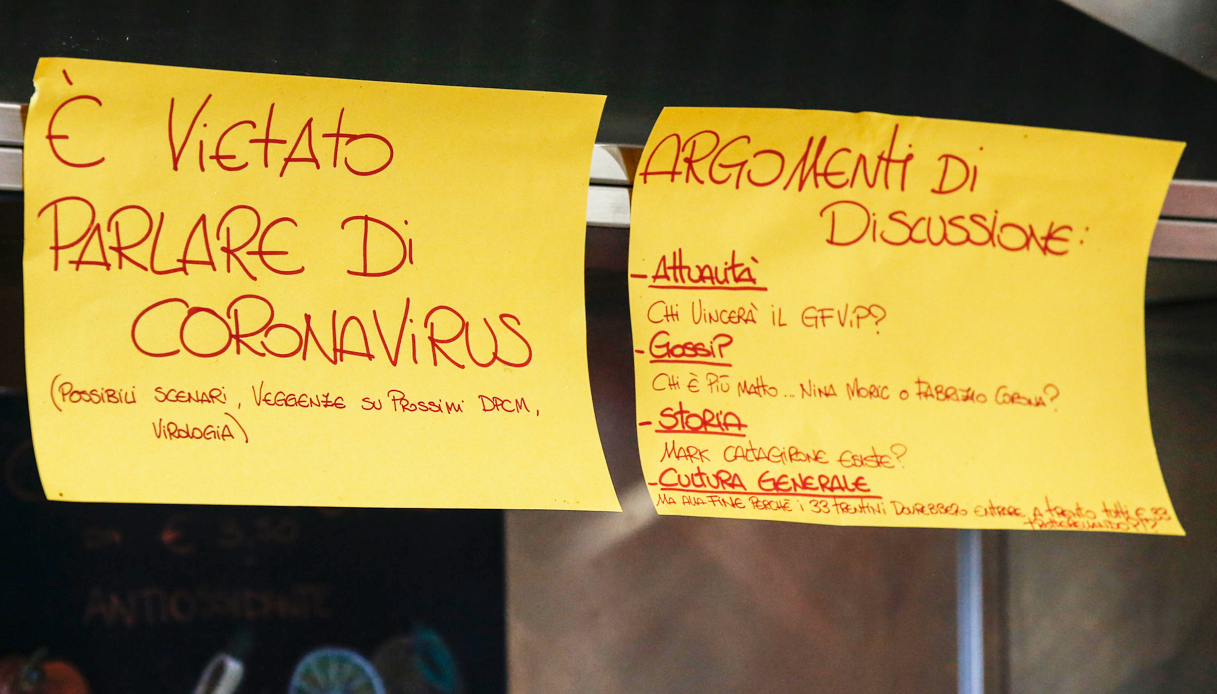 È VIETATO
PARLARE DI
CORONAVIRUS
(POSSIBILI SCENARI, VEGGENZE SU PROSSIMI DPCM,
VIROLOGIA)
ARGOMENTI DI
DISCUSSIONE:
- ATTUALITÀ
CHI VINCERÀ IL GFVIP?
- GOSSIP
CHI È PIÙ MATTO... NINA MORIC O FABRIZIO CORONA?
- STORIA
MARK CALTAGIRONE ESISTE?
- CULTURA GENERALE
MA ALLA FINE PERCHÈ I 33 TRENTINI DOVREBBERO ENTRARE A TRENTO TUTTI E 33
TROTTERELLANDO?
€ 3,50
ANTIOSSIDANTE